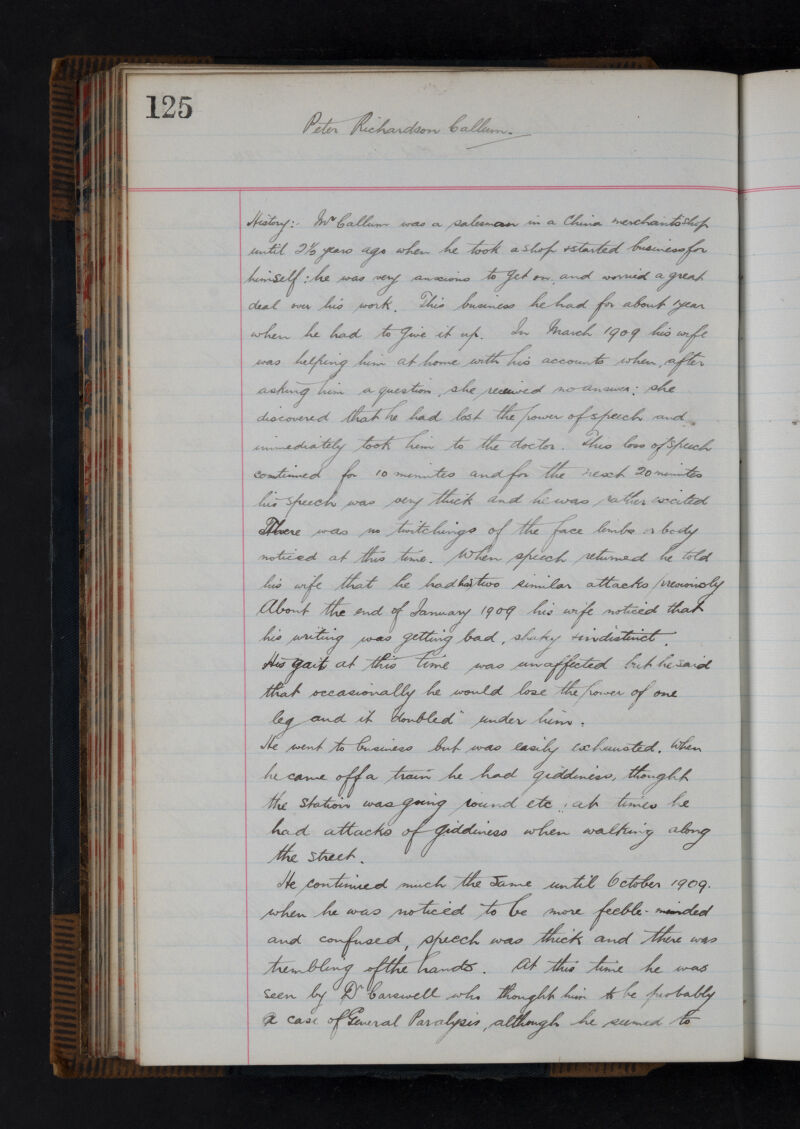 125
Peter Richardson Callum.
History:- Mr Callum was a salesman in a China merchants shop
until 2½ years ago when he took a shop & started business for
himself: he was very anxious to get on, and worried a great
deal over his work. This business he had for about 1 year
when he had to give it up. In March 1909 his wife
was helping him at home with his accounts when, after
asking him a question, she received no answer: she
discovered that he had lost the power of speech and
immediately took him to the doctor. This loss of speech
continued for 10 minutes and for the next 20 minutes
his speech was very thick and he was rather excited
There was no twitchings of the face limbs or body
noticed at this time. When speech returned he told
his wife that he had had two similar attacks previously
About the end of January 1909 his wife noticed that
his writing was getting bad, shaky & indistinct.
His gait at this time was unaffected but he said
that occasionally he would lose the power of one
leg and it "doubled" under him.
He went to business but was easily exhausted. When
he came off a train he had giddiness, thought
the station was going round etc.; at times he
had attacks of giddiness when walking along
the street.
He continued much the same until October 1909.
when he was noticed to be more feeble-minded
and confused, speech was thick and there was
trembling of the hands. At this time he was
seen by Dr Carswell who thought him to be probably
a case of General Paralysis, although he seemed to